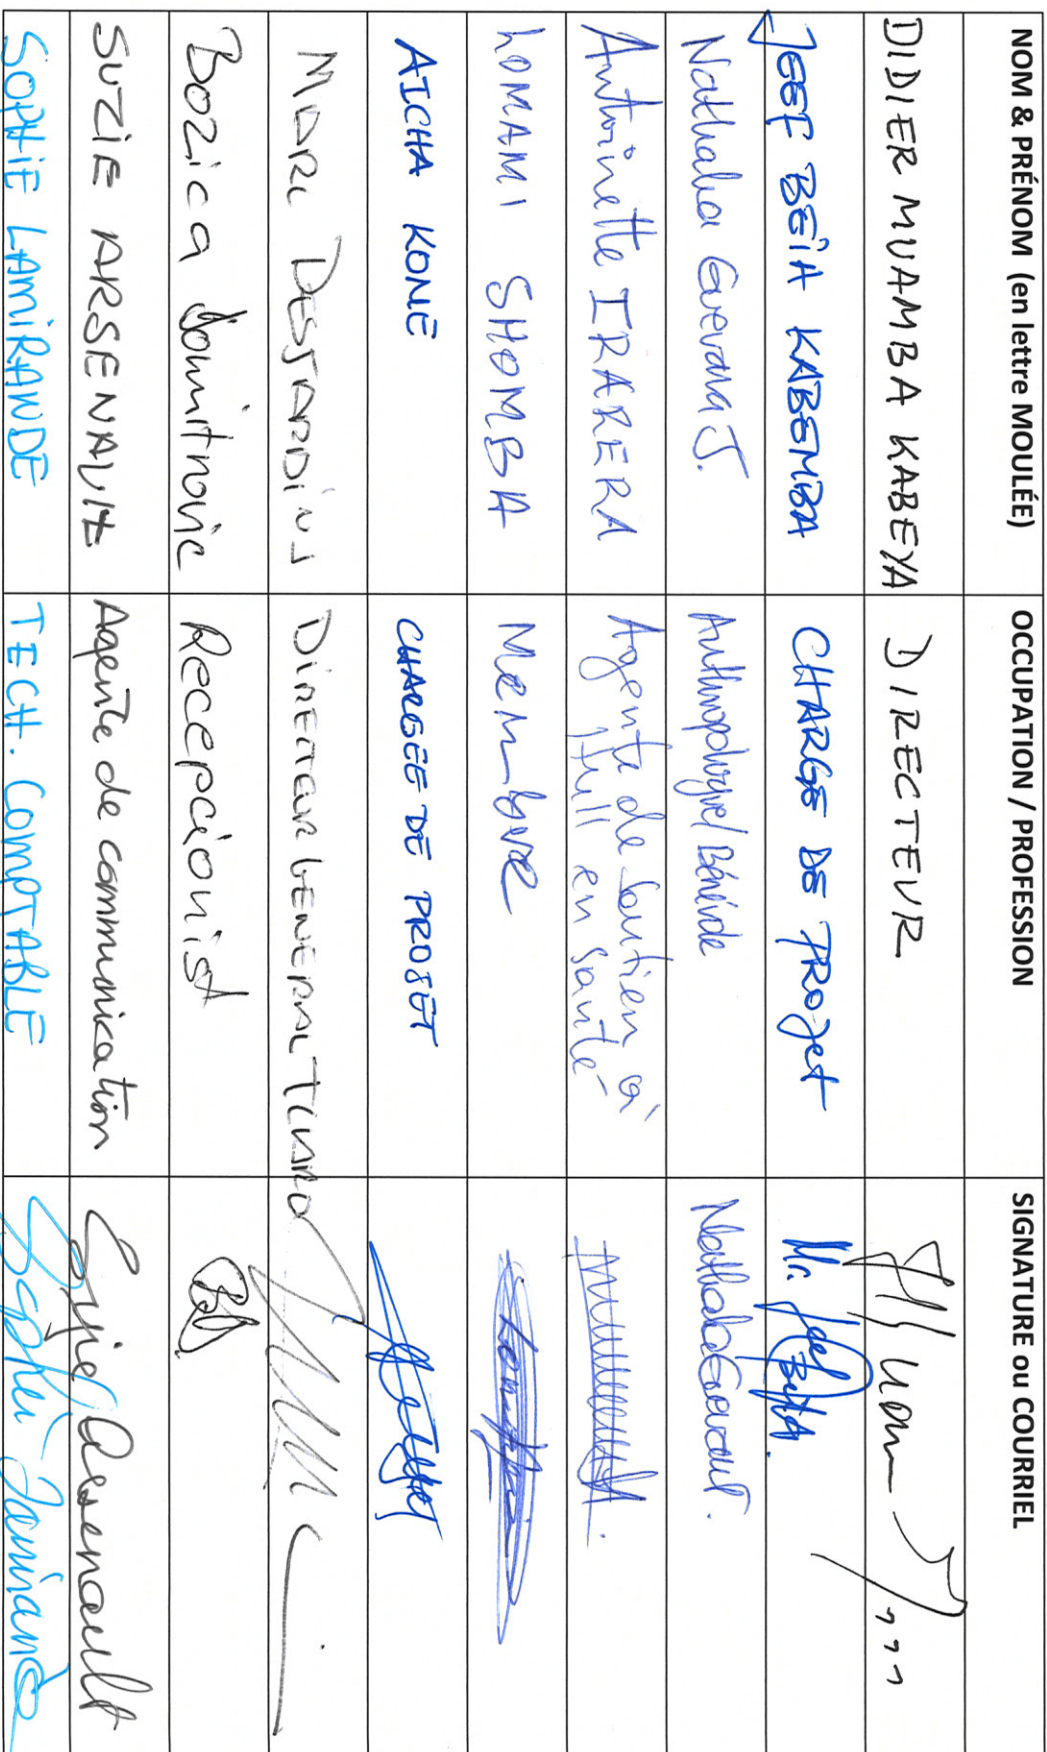 NOM & PRÉNOM (en lettre MOULÉE) OCCUPATION / PROFESSION SIGNATURE ou COURRIEL
DIDIER MUAMBA KABEYA DIRECTEUR
JEEF BEÏA KABEMBA CHARGE DE PROJET Mr. Jeef BEÏA.
Nathalia Guevara J. Anthropologue/Bénévole Nathalia Guevara J.
Antoinette IRARERA Agente de soutien à
Hull en santé
LOMAMI SHOMBA Membre
AICHA KONE CHARGEE DE PROJET
MARC DESJARDINS DIRECTEUR GENERAL TCARO
Bozica Domitrovic Recepcionist
SUZIE ARSENAULT Agente de communication Suzie Arsenault
SOPHIE LAMIRANDE TECH. COMPTABLE Sophie Lamirande